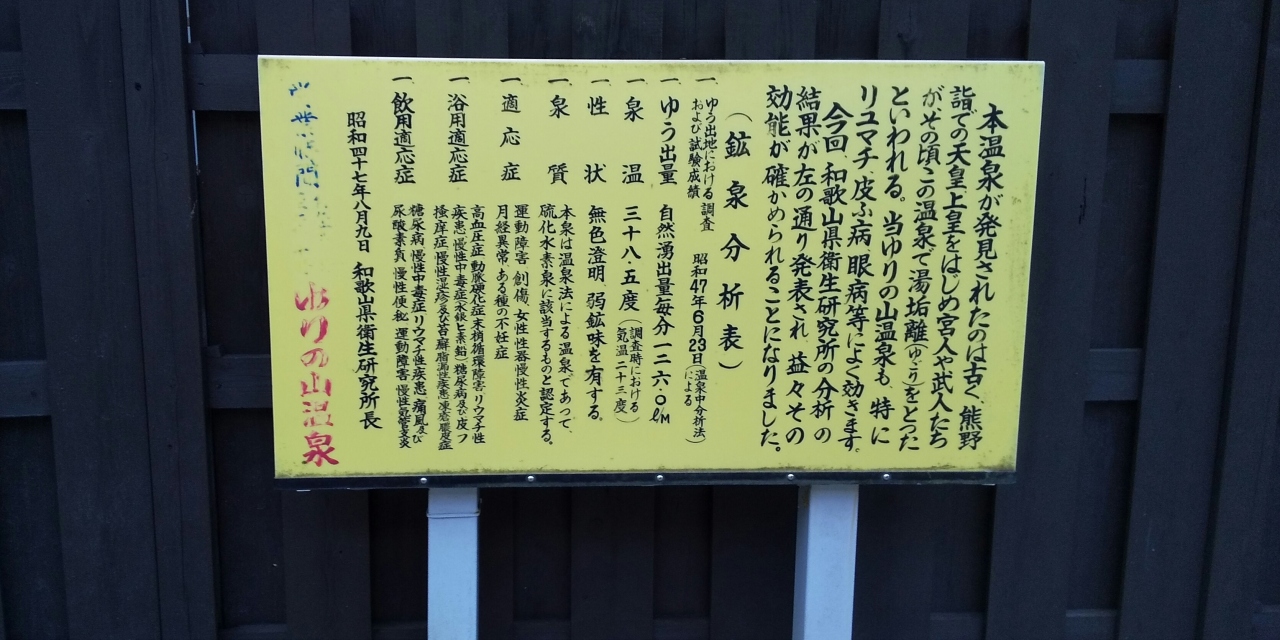 本温泉が発見されたのは古く、熊野
詣での天皇上皇をはじめ宮人や武人たち
が、その頃この温泉で湯垢離(ゆごり)をとった
といわれる。当ゆりの山温泉も、特に
リユマチ、皮ふ病、眼病等によく効きます。
今回、和歌山県衛生研究所の分析の
結果が左の通り発表され、益々その
効能が確かめられることになりました。
(鉱泉分析表)
一 ゆう出地における調査
および試験成績
昭和47年6月23日(温泉中分析法)
による
一 ゆう出量 自然湧出量毎分一二六・〇ℓ/M
一 泉温 三十八・五度(調査時における
気温二十三度)
一 性状 無色澄明、弱鉱味を有する。
一 泉質 本泉は温泉法による温泉であって、
硫化水素泉に該当するものと認定する。
一 適応症 運動障害、創傷、女性性器慢性炎症
月経異常、ある種の不妊症
一 浴用適応症 高血圧症 動脈硬化症 末梢循環障害 リウマチ性
疾患 慢性中毒症(水銀ヒ素鉛)糖尿病及び皮フ
掻痒症 慢性湿疹及び苔癬
一 飲用適応症 糖尿病 慢性中毒症 リウマチ性疾患 痛風及び
尿酸素質 慢性便秘 運動障害 慢性気管支炎
昭和四十七年八月九日 和歌山県衛生研究所長
ゆりの山温泉